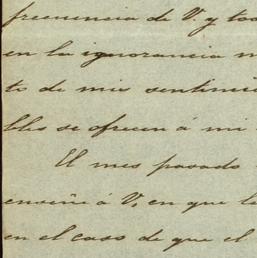 frecuencia de V. y tod
en la ignorancia m
to de mis sentimi
bles se ofrecen á mi
El mes pasado
enseñé á V. en que le
en el caso de que el